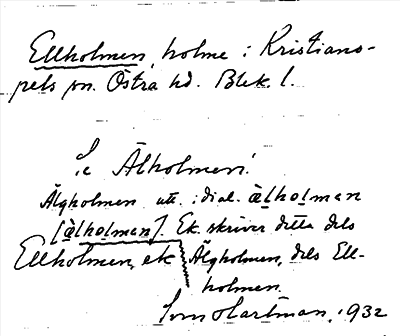 Ellholmen, holme i Kristiano-
pels sn. Östra hd. Blek. l.
Se Älholmen!
Älgholmen utt. i dial. älholman
[älholman]. Ek. skriver detta dels
Ellholmen, ek Älgholmen, dels Ell-
holmen.
Sven Hartman, 1932